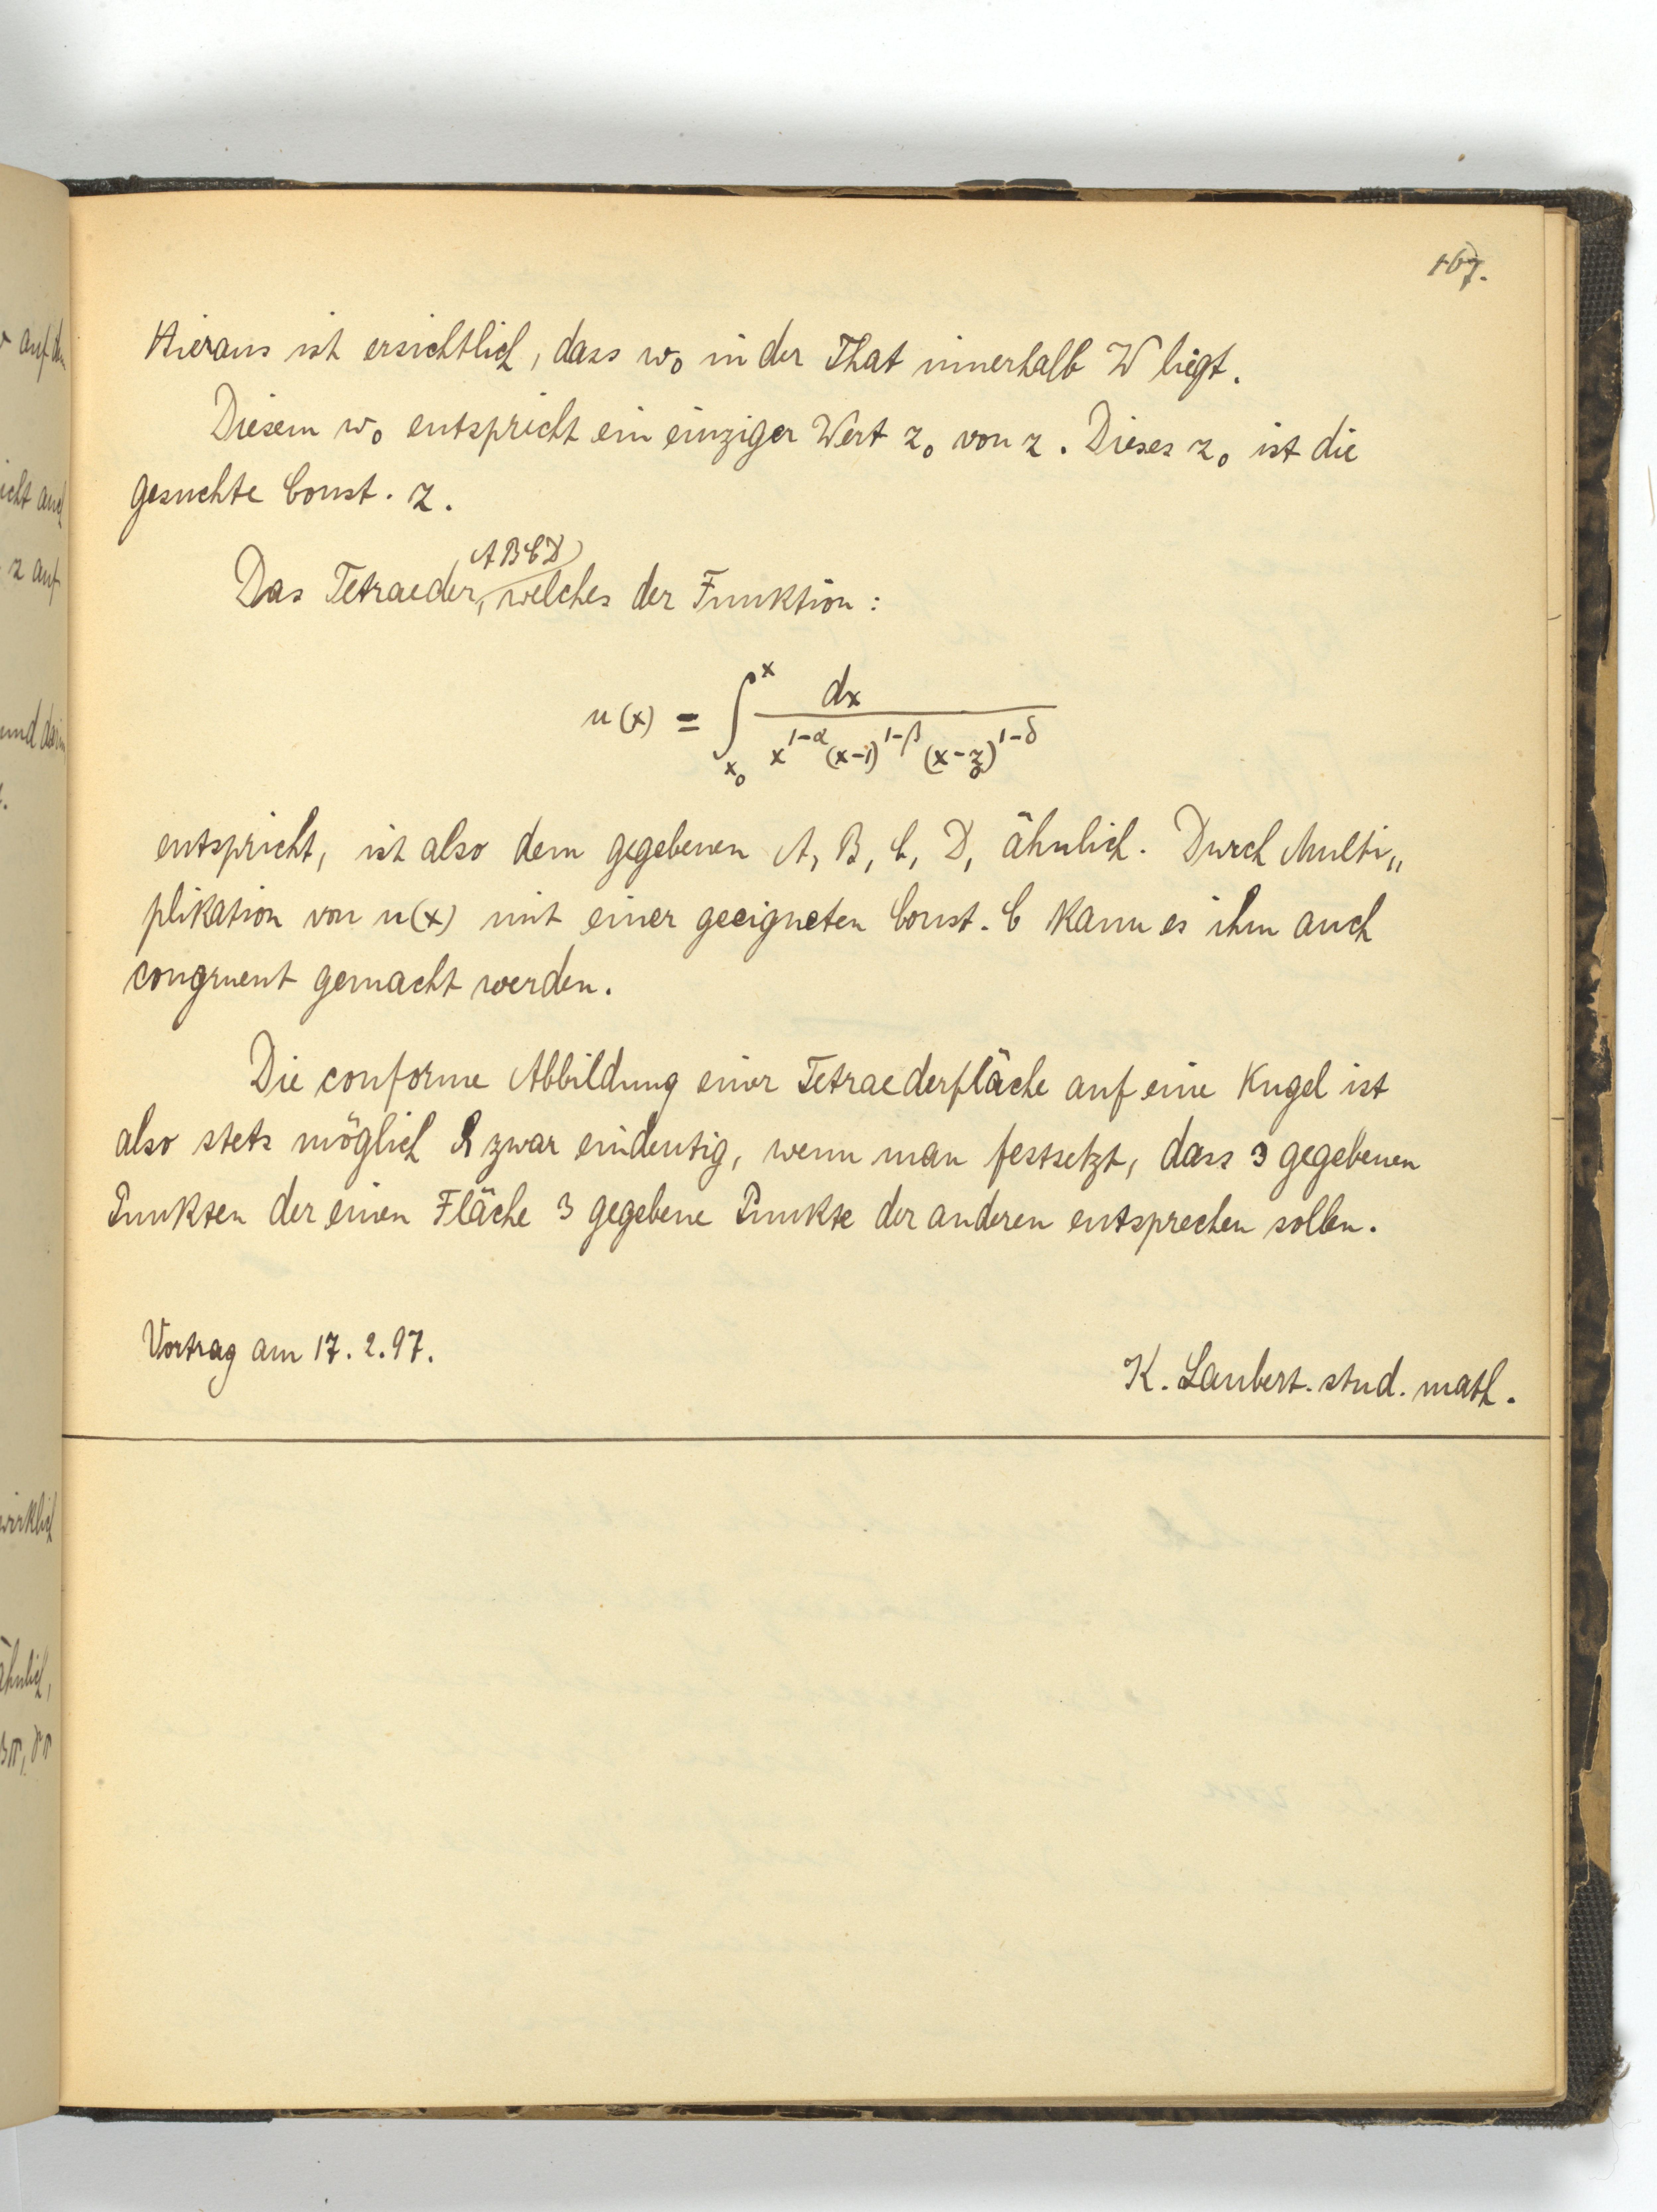 167.
Hieraus ist ersichtlich, dass w₀ in der That innerhalb W liegt.
Diesem w₀ entspricht ein einziger Wert z₀ von z. Dieses z₀ ist die
gesuchte Const. z.
ABCD
Das Tetraeder, welches der Funktion:
u(x) = ∫_{x₀}^{x} dx / (x^{1-α} (x-1)^{1-β} (x-z₀)^{1-δ})
entspricht, ist also dem gegebenen A, B, C, D, ähnlich. Durch Multi„
plikation von u(x) mit einer geeigneten Const. C kann es ihm auch
congruent gemacht werden.
Die conforme Abbildung einer Tetraederfläche auf eine Kugel ist
also stets möglich & zwar eindeutig, wenn man festsetzt, dass 3 gegebenen
Punkten der einen Fläche 3 gegebene Punkte der anderen entsprechen sollen.
Vortrag am 17. 2. 97.
K. Laubert. stud. math.
auf den
icht auch
z auf
und darin
wirklich
ähnlich,